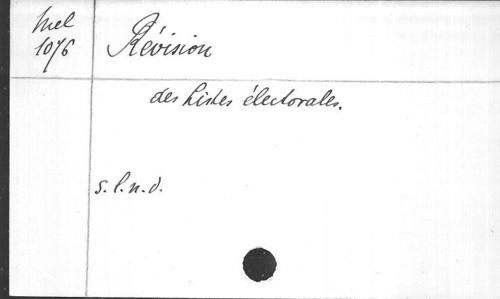 Mel
1076
Révision
des Listes électorales.
s.l.n.d.